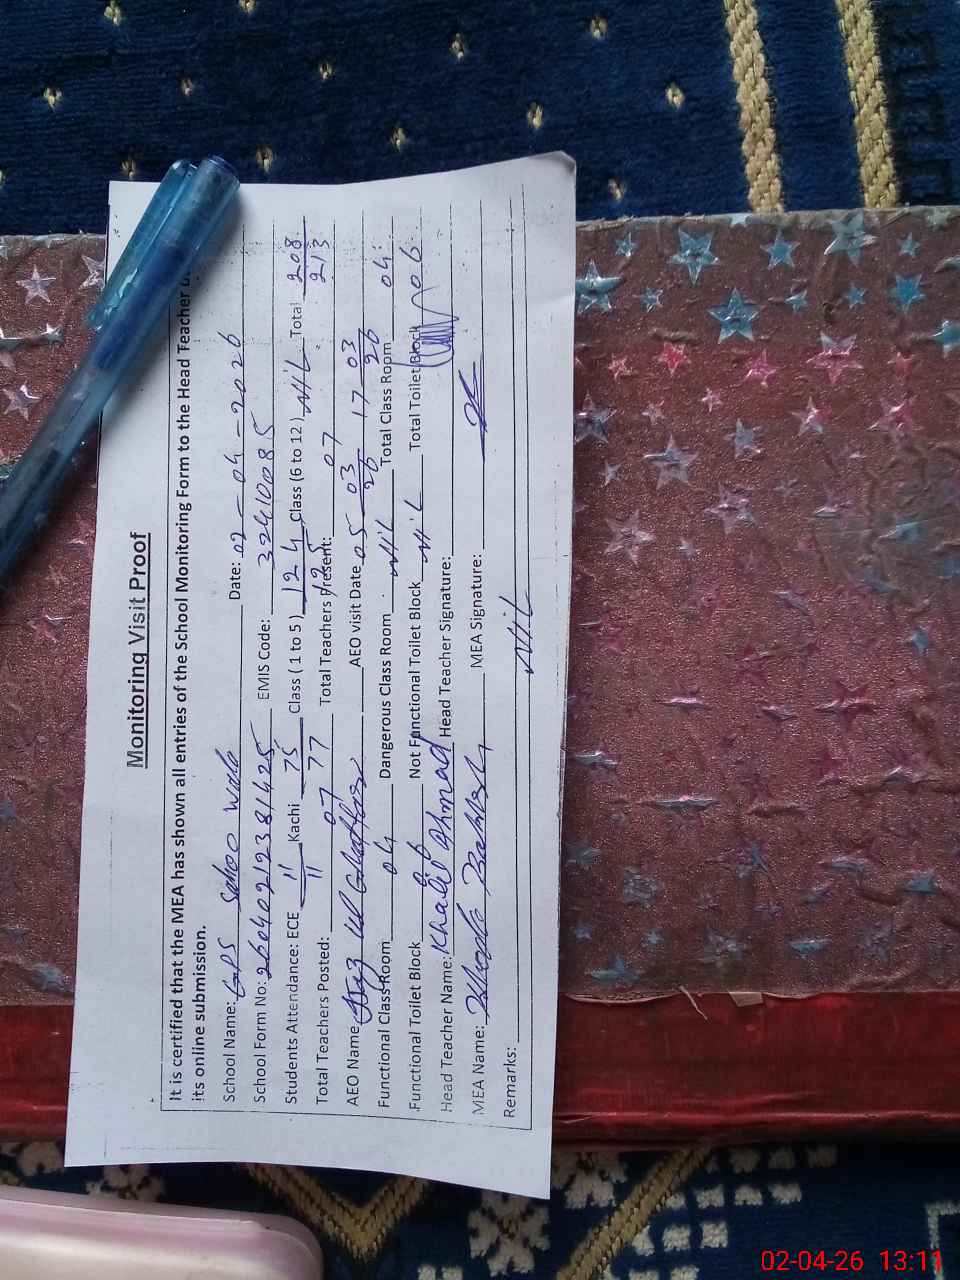 Monitoring Visit Proof
It is certified that the MEA has shown all entries of the School Monitoring Form to the Head Teacher
its online submission.
School Name: GPS Sohoo Wala Date: 02-04-2026
School Form No: 26040212381425 EMIS Code: 32410085
Students Attendance: ECE 11/11 Kachi 75/77 Class (1 to 5) 124/125 Class (6 to 12) NIL Total 208/213
Total Teachers Posted: 07 Total Teachers Present: 07
AEO Name AEO visit Date 05 03/26 17 03/26
Functional Class Room 04 Dangerous Class Room NIL Total Class Room 04
Functional Toilet Block 06 Not Functional Toilet Block NIL Total Toilet Block 06
Head Teacher Name: Khalil Ahmad Head Teacher Signature:
MEA Name: MEA Signature:
Remarks: NIL
02-04-26 13:11